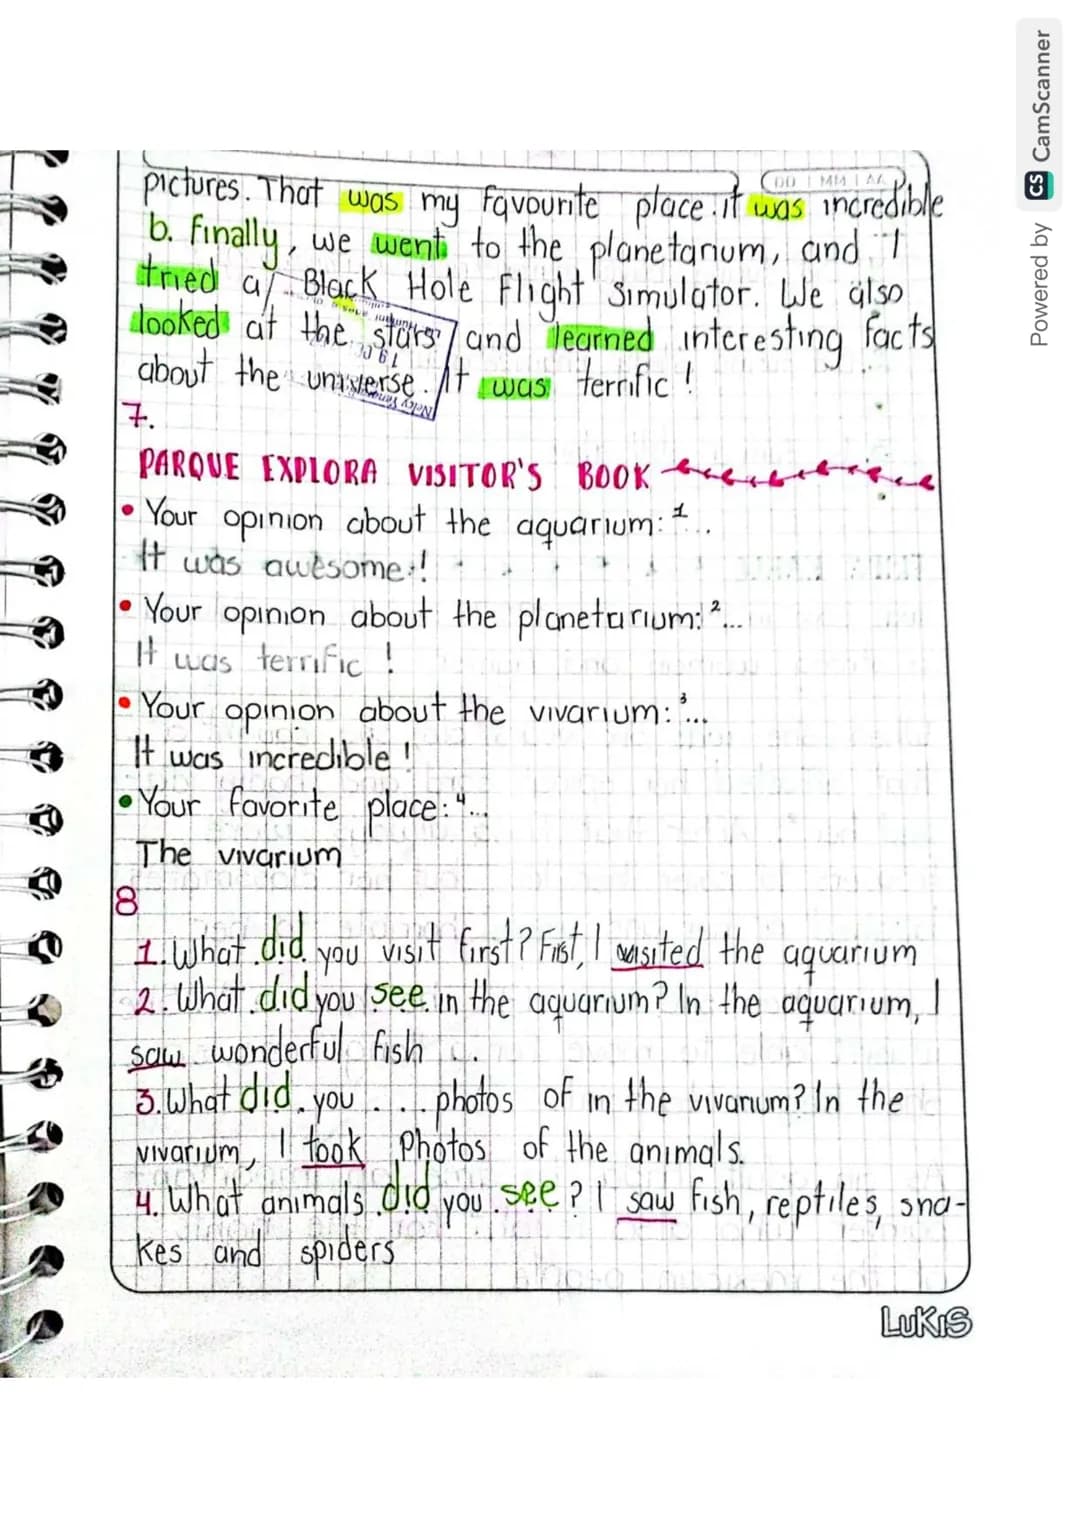 DD MM AA
pictures. That was my favourite place. it was incredible
b. Finally, we went to the planetarium, and I
tried a Black Hole Flight Simulator. We also
looked at the stars and learned interesting facts
about the universe. It was terrific!
7.
PARQUE EXPLORA VISITOR'S BOOK
• Your opinion about the aquarium: 1...
It was awesome!
• Your opinion about the planetarium: 2...
It was terrific!
• Your opinion about the vivarium: 3...
It was incredible!
• Your favorite place: 4...
The vivarium
8
1. What did you visit first? First, I visited the aquarium
2. What did you see in the aquarium? In the aquarium, I
saw wonderful fish
3. What did you .... photos of in the vivarium? In the
vivarium, I took Photos of the animals.
4. What animals did you see? I saw fish, reptiles, sna-
kes and spiders
LUKIS
Powered by CS CamScanner